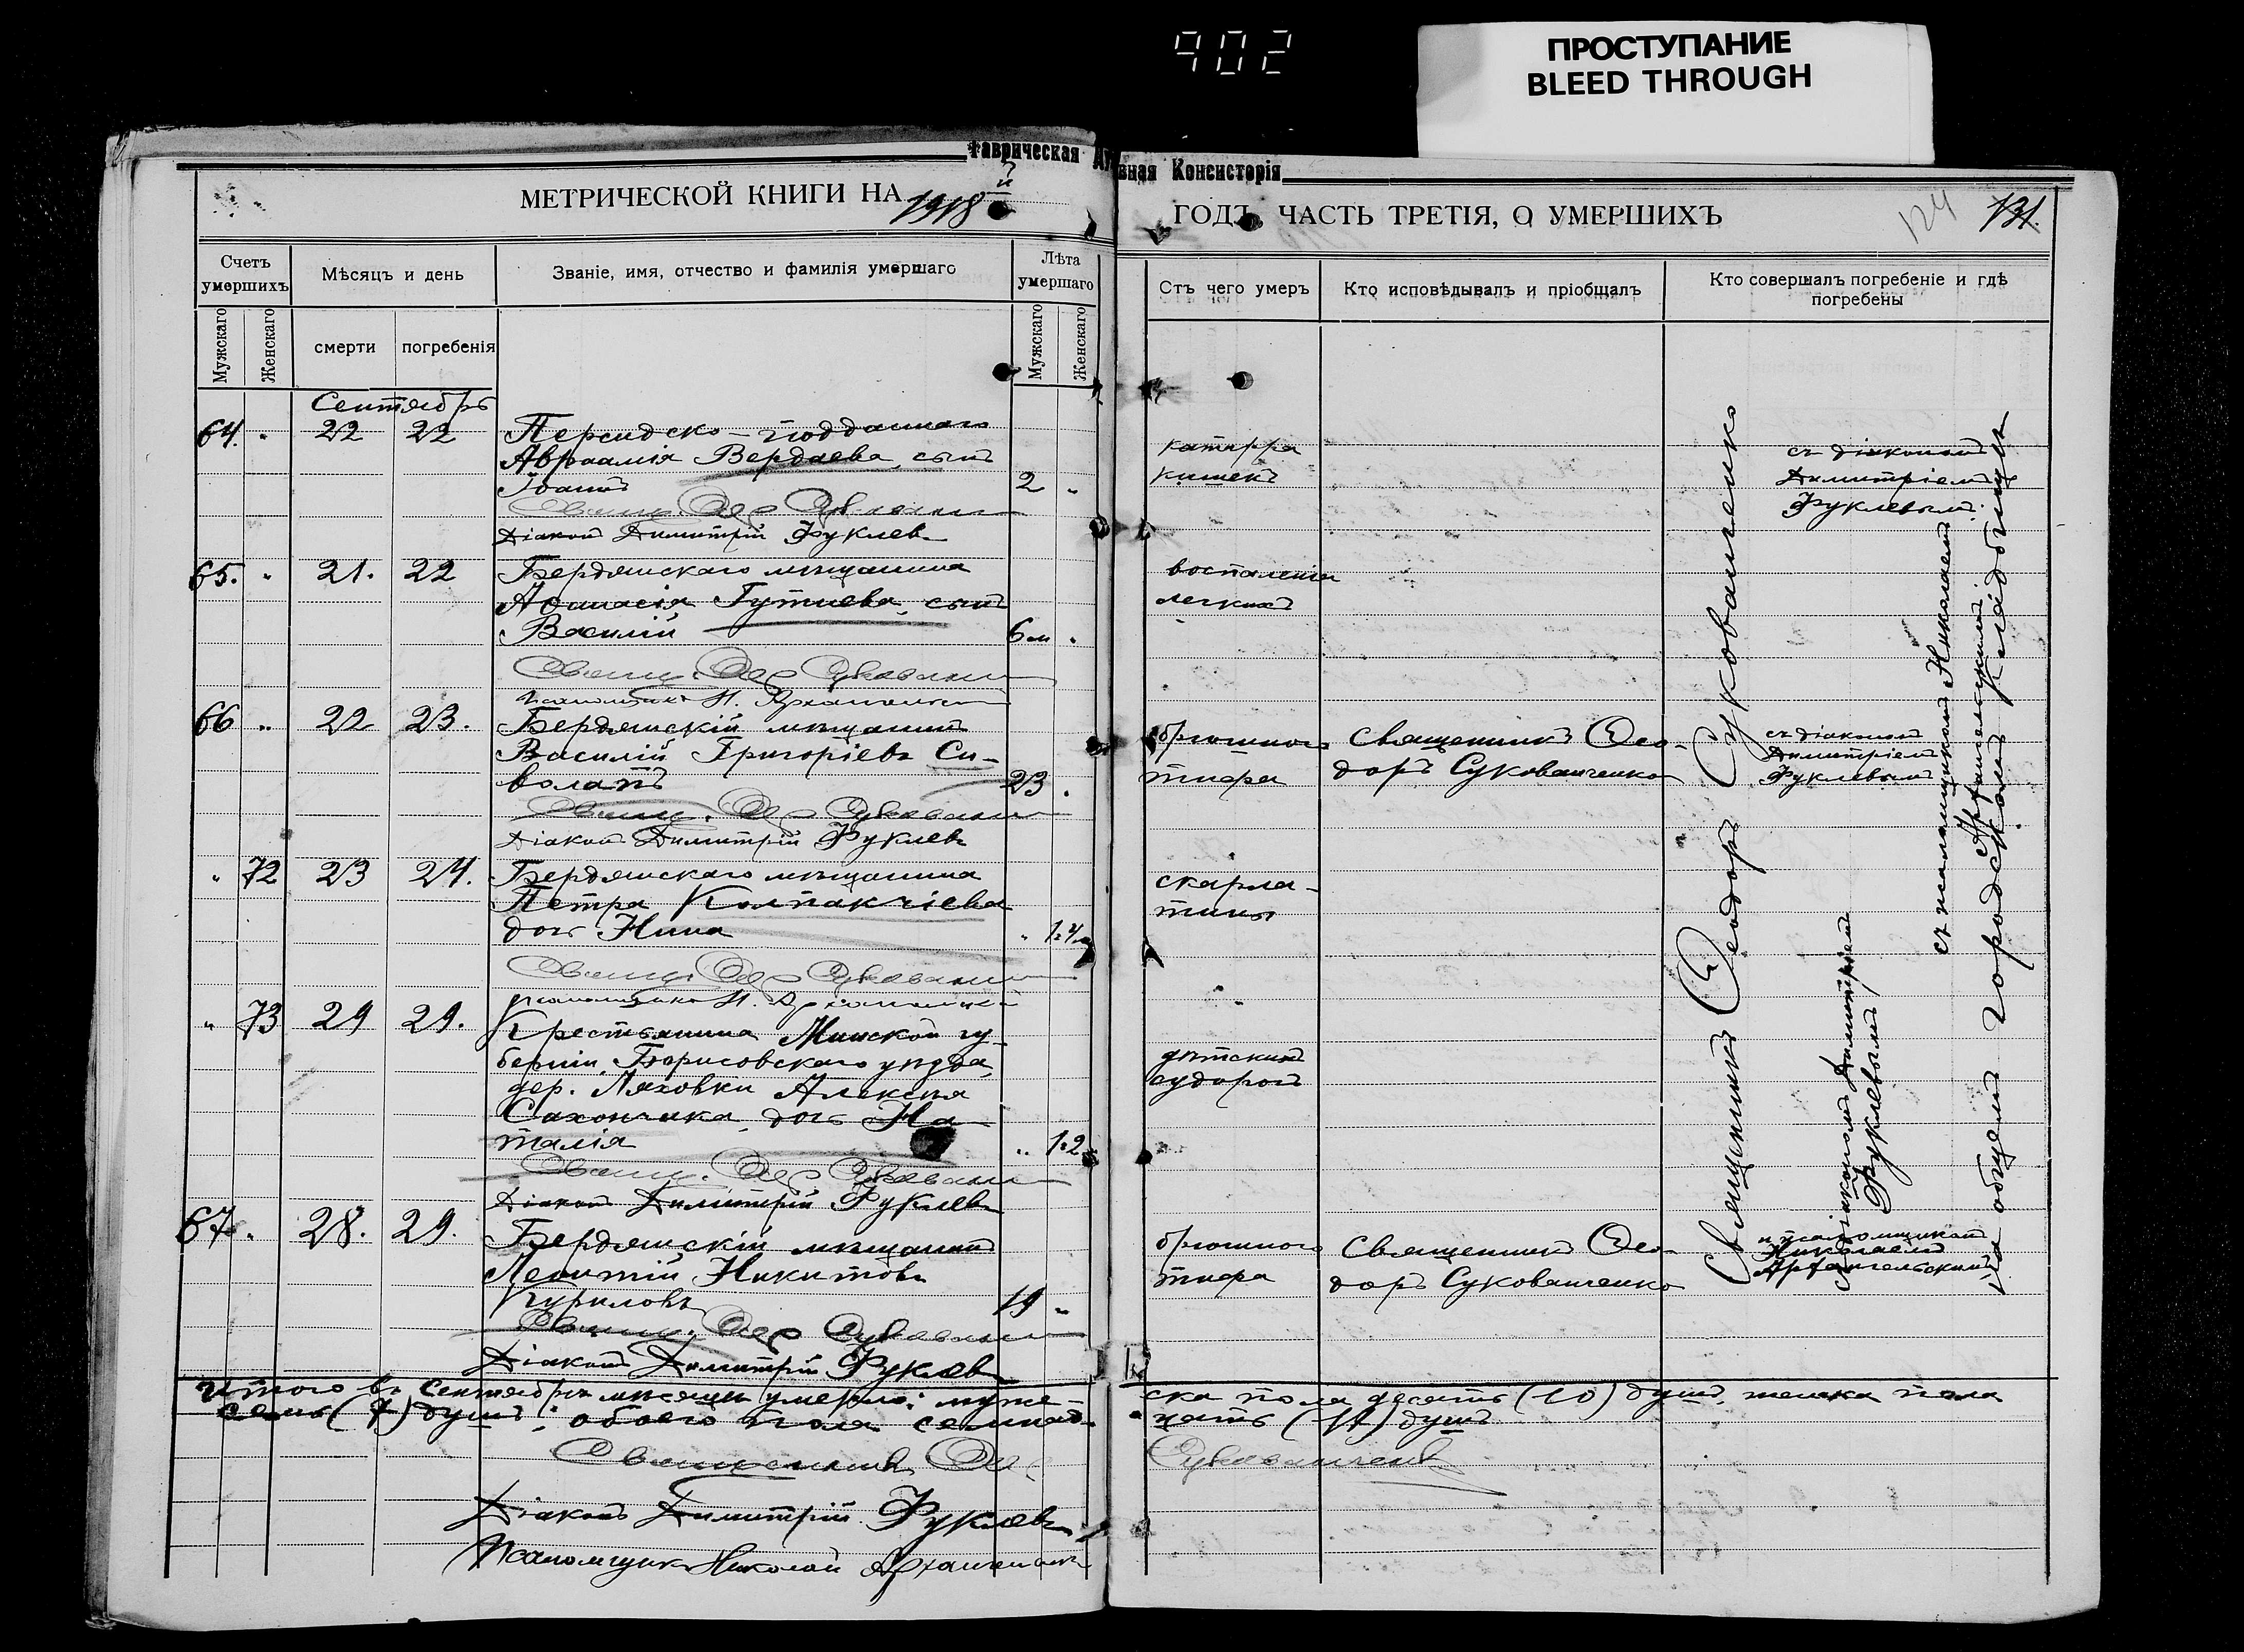 902
ПРОСТУПАНИЕ
BLEED THROUGH
Таврическая
вная Консисторія
МЕТРИЧЕСКОЙ КНИГИ НА 1918 й
ГОДЪ, ЧАСТЬ ТРЕТІЯ, О УМЕРШИХЪ
124
131.
Счетъ умершихъ
Мужскаго
Женскаго
Мѣсяцъ и день
смерти
погребенія
Званіе, имя, отчество и фамилія умершаго
Лѣта умершаго
Мужскаго
Женскаго
Отъ чего умеръ
Кто исповѣдывалъ и пріобщалъ
Кто совершалъ погребеніе и гдѣ
погребены
Сентябрь
64. " 22 22 Персидско-подданнаго
Авраамія Вердаева, сынъ
Іоаннъ 2 "
катарра
кишекъ
съ діакономъ
Димитріемъ
Фуклевымъ.
Свящ. Ѳео Сукованч
Діаконъ Димитрій Фуклевъ
65. " 21. 22 Бердянскаго мѣщанина
Аѳанасія Гутнева, сынъ
Василій 6 м "
воспаленія
легкихъ
Свящ. Ѳео Сукованч
Псаломщикъ Н. Архангельскій
66 " 22 23. Бердянскій мѣщанинъ
Василій Григоріевъ Си-
волапъ 23 .
брюшного
тифа
Священникъ Ѳео-
доръ Сукованченко
съ діакономъ
Димитріемъ
Фуклевымъ
Свящ. Ѳео Сукованч
Діаконъ Димитрій Фуклевъ
" 72 23 24. Бердянскаго мѣщанина
Петра Колпакчіева
дочь Нина "
скарла-
тины
Свящ. Ѳео Сукованч
Псаломщикъ Н. Архангельскій
" 73 29 29. Крестьянина Минской гу-
берніи, Борисовскаго уѣзда,
дер. Ляховки Алексѣя
Сахончика, дочь На-
талія "
дѣтскихъ
судорогъ
Свящ. Ѳео Сукованч
Діаконъ Димитрій Фуклевъ
67 " 28. 29. Бердянскій мѣщанинъ
Леонтій Никитовъ
Куриловъ 19 "
брюшного
тифа
Священникъ Ѳео-
доръ Сукованченко
и псаломщикомъ
Николаемъ
Архангельскимъ
Свящ. Ѳео Сукованч
Діаконъ Димитрій Фуклевъ
Священникъ Ѳеодоръ Сукованченко
съ діакономъ Димитріемъ
Фуклевымъ
съ псаломщикомъ Николаемъ
Архангельскимъ
на общемъ городскомъ кладбищѣ
Итого въ Сентябрѣ мѣсяцѣ умерло: муже-
ска пола десять (10) душъ, женска пола
семь (7) душъ; обоего пола семнад-
цать (17) душъ
Священникъ Ѳео Сукованченко
Діаконъ Димитрій Фуклевъ
Псаломщикъ Николай Архангельскій